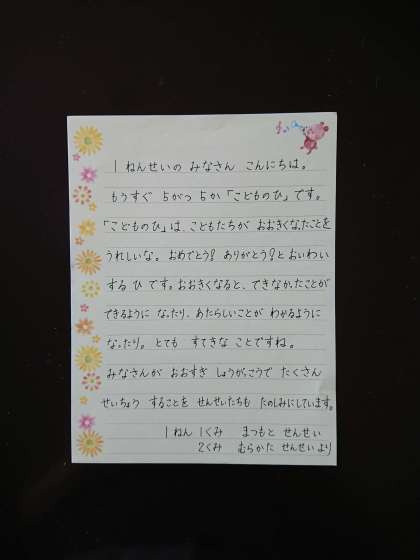 1ねんせいの みなさん こんにちは。
もうすぐ 5がつ 5か「こどものひ」です。
「こどものひ」は、こどもたちが おおきくなったことを
うれしいな。おめでとう! ありがとう!とおいわい
する ひ です。おおきくなると、できなかったことが
できるように なったり、あたらしいことが わかるように
なったり。とても すてきな ことですね。
みなさんが おおすぎ しょうがっこうで たくさん
せいちょう することを せんせいたちも たのしみにしています。
1ねん 1くみ まつもと せんせい
2くみ むらかた せんせいより